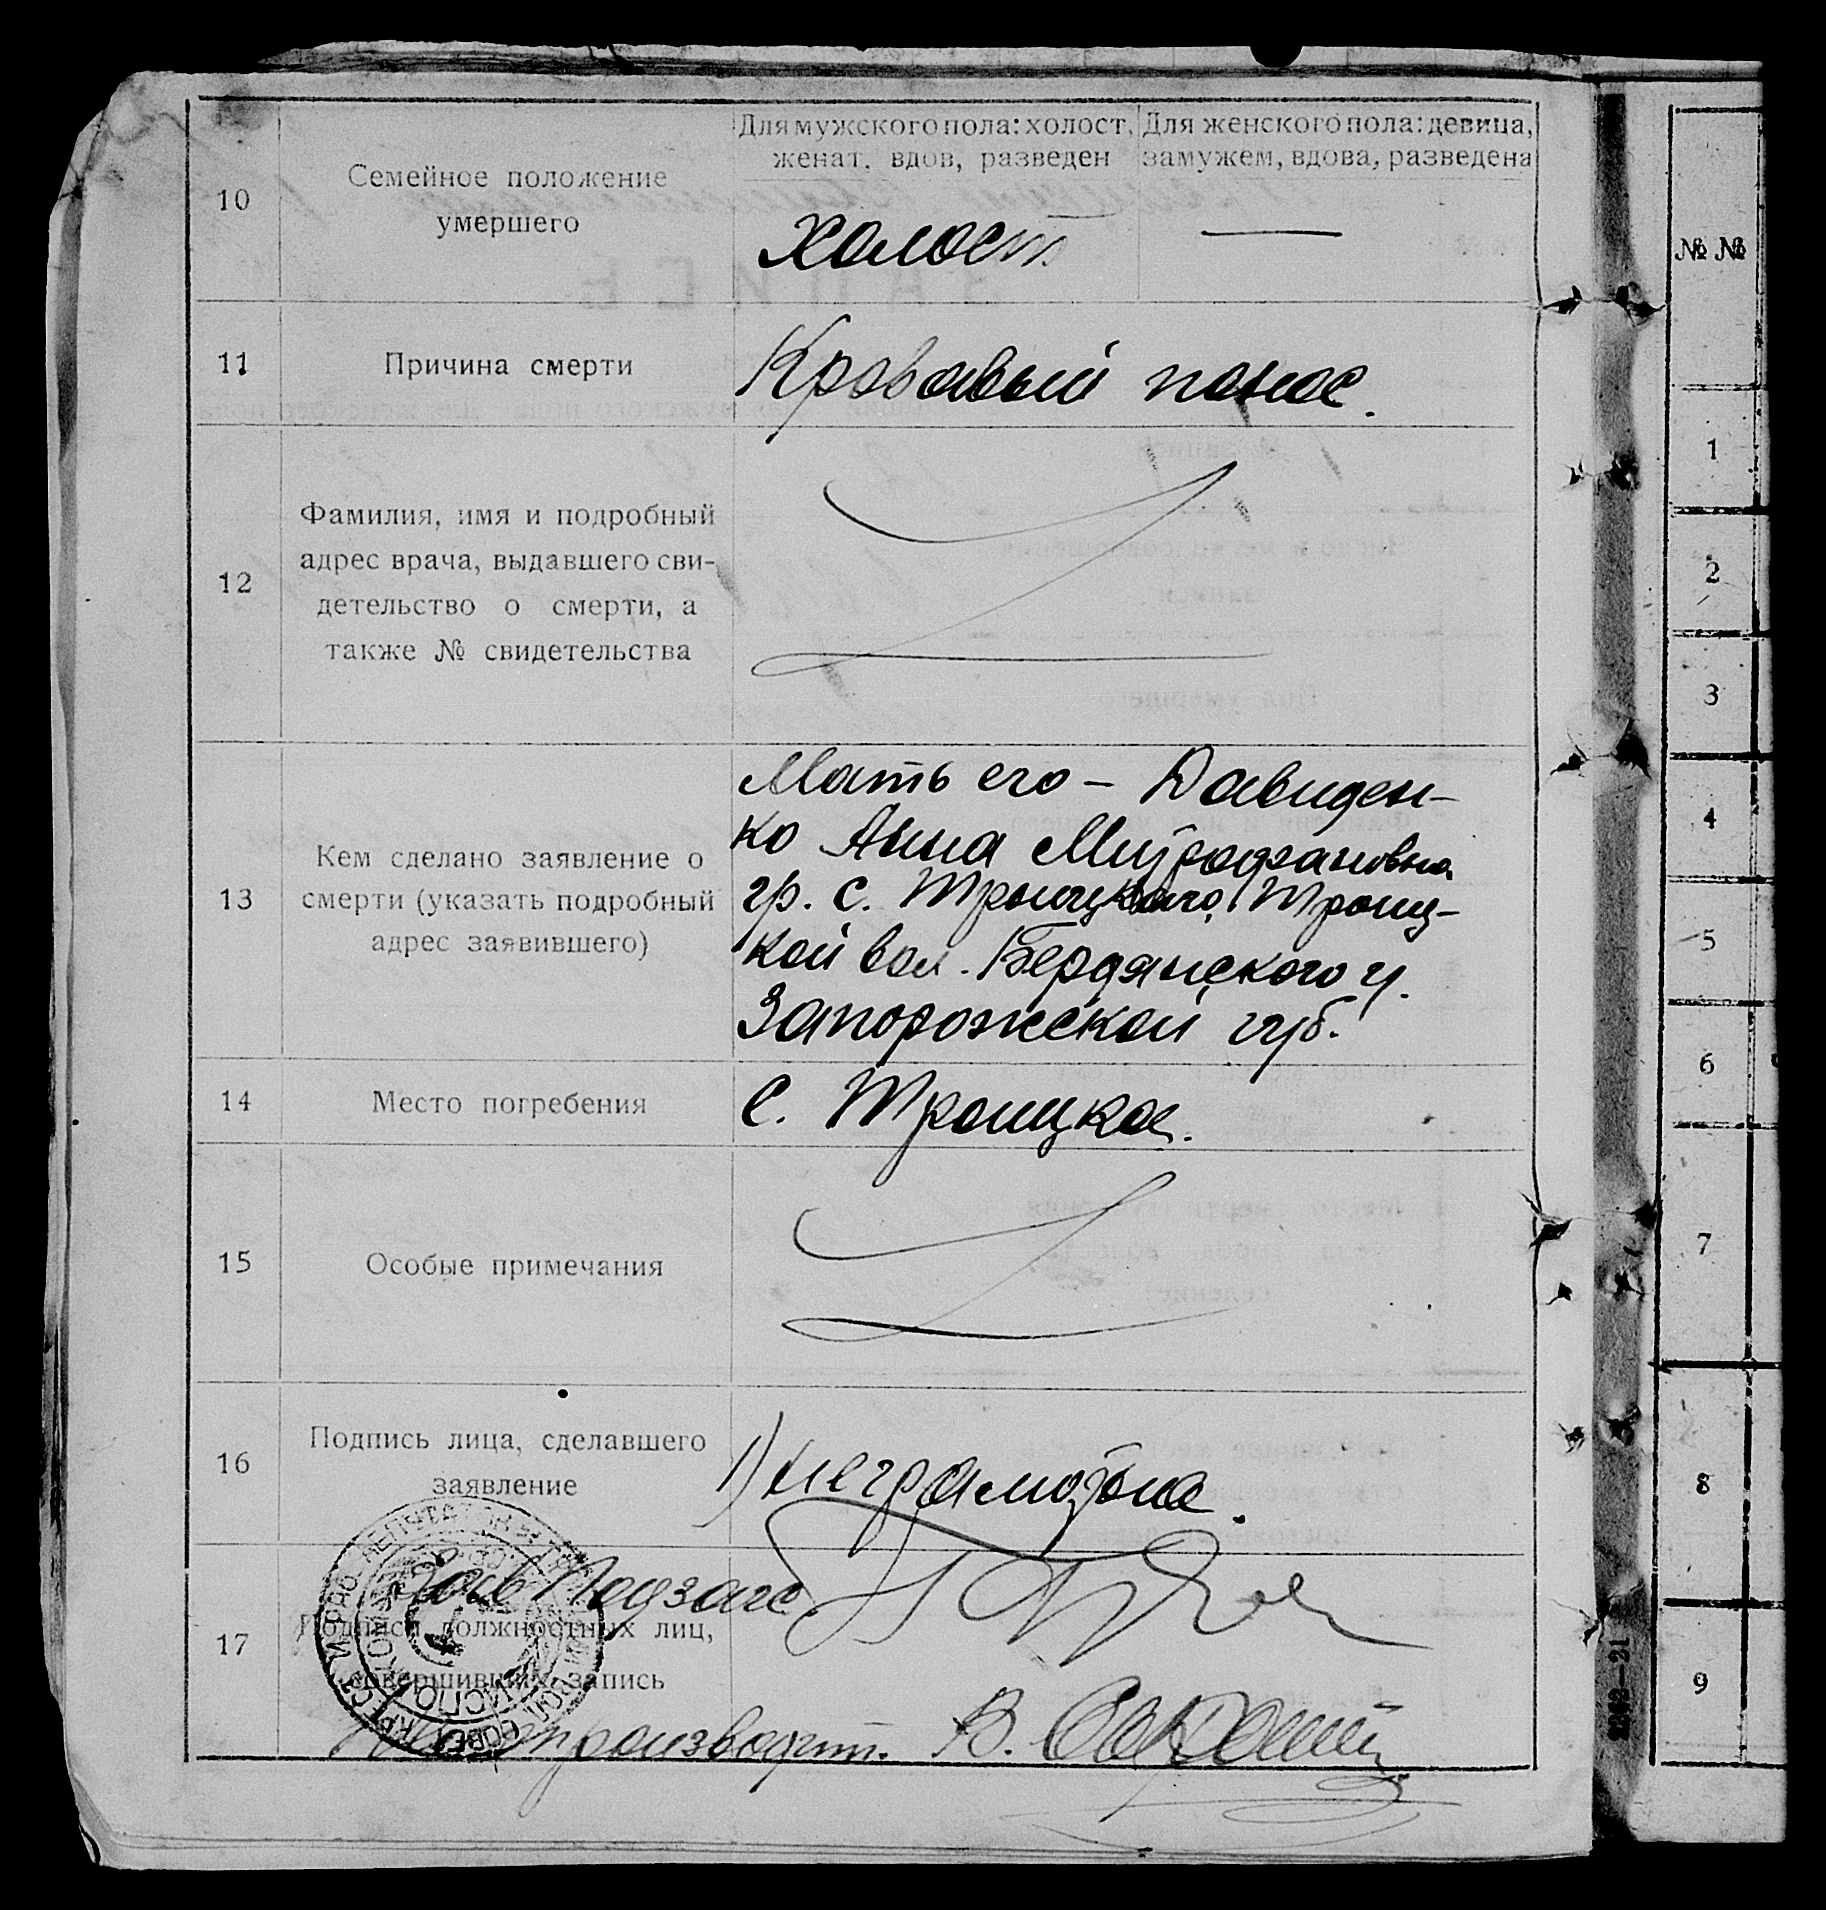 10
Семейное положение
умершего
Для мужского пола: холост,
женат, вдов, разведен
Для женского пола: девица,
замужем, вдова, разведена
холост
—
11
Причина смерти
Кровавый понос.
12
Фамилия, имя и подробный
адрес врача, выдавшего сви-
детельство о смерти, а
также № свидетельства
13
Кем сделано заявление о
смерти (указать подробный
адрес заявившего)
Мать его – Давиден-
ко Анна Митрофановна
гр. с. Троицкаго, Троиц-
кой вол. Бердянского у.
Запорожской губ.
14
Место погребения
С. Троицкое.
15
Особые примечания
16
Подпись лица, сделавшего
заявление
1) неграмотна.
17
Подписи должностных лиц,
совершивших запись
Зав Подзагс
производит. В.
№ №
1
2
3
4
5
6
7
8
9